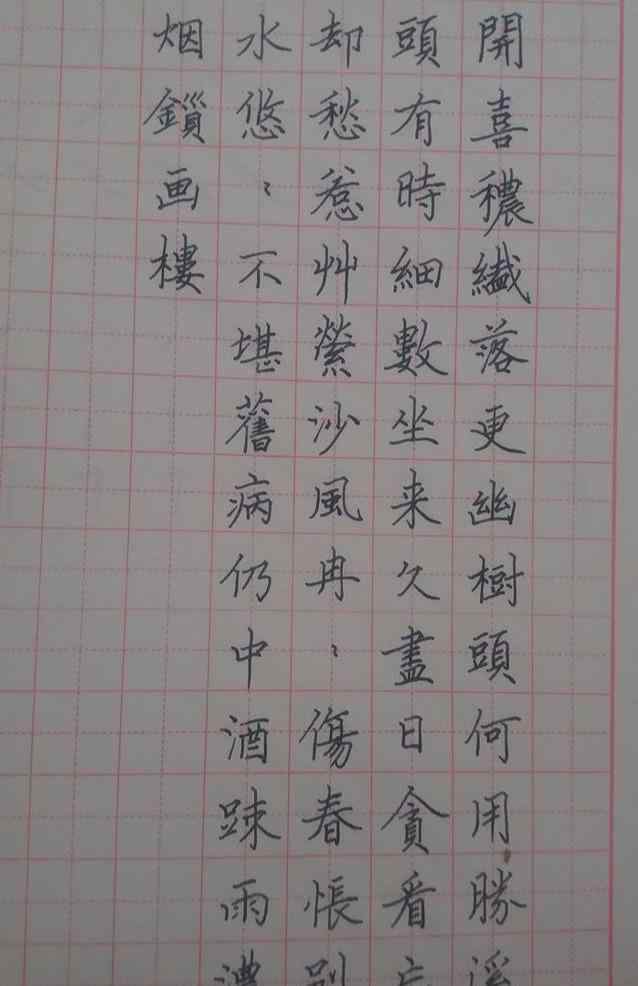 開喜穠纖落更幽樹頭何用勝溪
頭有時細數坐来久盡日貪看忘
却愁惹艸縈沙風冉〻傷春悵别
水悠〻不堪舊病仍中酒踈雨濃
烟鎖画樓